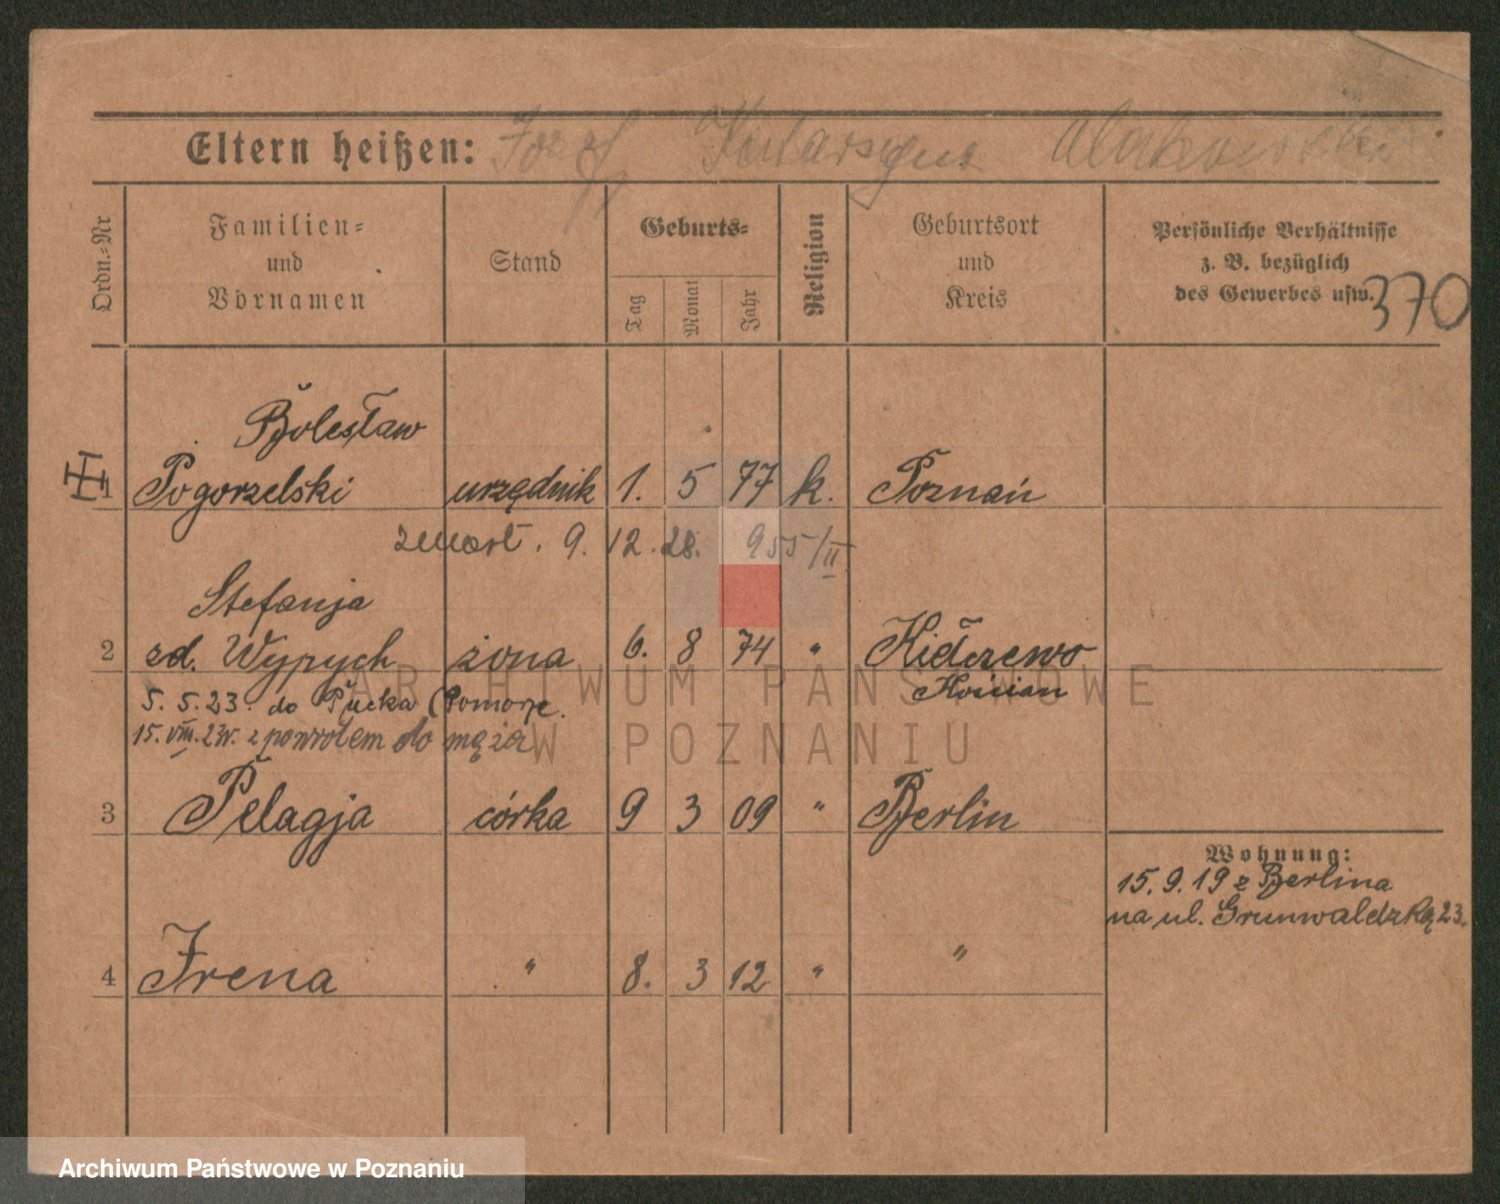 Eltern heißen: Józef Katarzyna
Ordn.=Nr
Familien=
und
Vornamen
Stand
Geburts=
Tag
Monat
Jahr
Religion
Geburtsort
und
Kreis
Persönliche Verhältnisse
z. B. bezüglich
des Gewerbes usw.
370
Bolesław
1 Pogorzelski urzędnik 1. 5 77 k. Poznań
zmarł. 9. 12. 28. 955/II
Stefanja
2 zd. Wypych żona 6. 8 74 " Kiełczewo
Kościan
5. 5. 23. do Pucka (Pomorze.
15. VIII. 23r. z powrotem do męża
3 Pelagja córka 9 3 09 " Berlin
Wohnung:
15. 9. 19 z Berlina
na ul. Grunwaldzką 23.
4 Irena " 8. 3 12 " "
ARCHIWUM PAŃSTWOWE
W POZNANIU
Archiwum Państwowe w Poznaniu